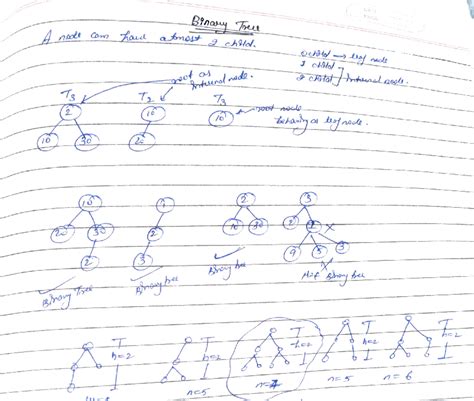 Binary Tree
A node can have atmost 2 child.
0 child → leaf node
1 child
2 child } internal node.
root as internal node.
T3 T2 T3
2 10 10 ← root node behaving as leaf node.
10 30 20
10 1 2 3
20 30 2 10 30 2 X
2 3 9 5 3
✓ Binary Tree
✓ Binary tree
✓ Binary tree
X Not Binary tree
h=2 h=2 h=2 h=2 h=2
n=5 n=7 n=5 n=6